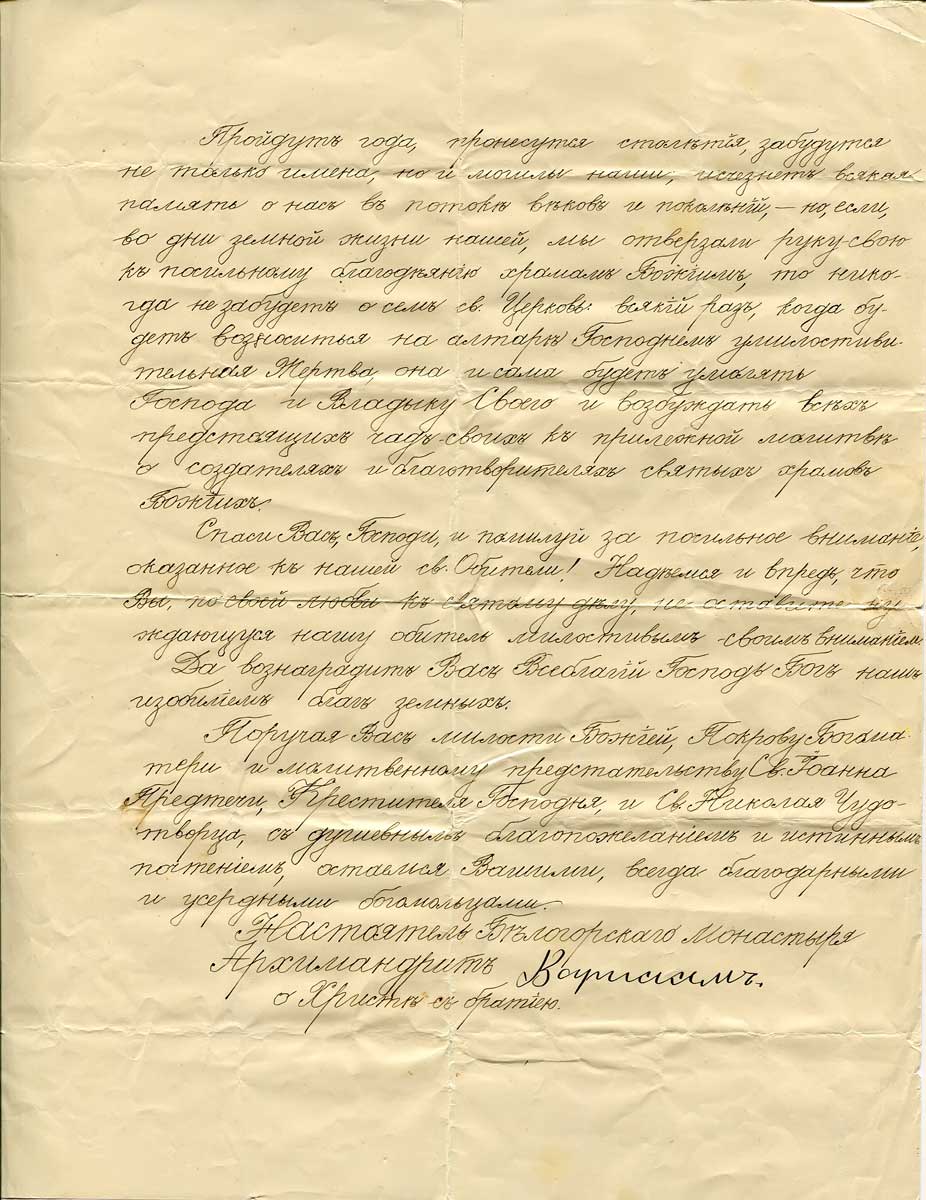 Пройдутъ года, пронесутся столѣтія, забудутся
не только имена, но и могилы наши, исчезнетъ всякая
память о насъ въ потокѣ вѣковъ и поколѣній, — но, если,
во дни земной жизни нашей, мы отверзали руку свою
къ посильному благодѣянію храмамъ Божіимъ, то нико-
гда не забудетъ о семъ св. Церковь: всякій разъ, когда бу-
детъ возноситься на алтарѣ Господнемъ умилостиви-
тельная Жертва, она и сама будетъ умолять
Господа и Владыку Своего и возбуждать всѣхъ
предстоящихъ чадъ своихъ къ прилежной молитвѣ
о создателяхъ и благотворителяхъ святыхъ храмовъ
Божіихъ.
Спаси Васъ, Господи, и помилуй за посильное вниманіе,
оказанное къ нашей св. Обители! Надѣемся и впредь, что
Вы, по своей любви къ святому дѣлу, не оставите ну
ждающуюся нашу обитель милостивымъ своимъ вниманіемъ.
Да вознаградитъ Васъ Всеблагій Господь Богъ нашъ
изобиліемъ благъ земныхъ.
Поручая Васъ милости Божіей, Покрову Богома-
тери и молитвенному предстательству Св. Іоанна
Предтечи, Крестителя Господня, и Св. Николая Чудо-
творца, съ душевнымъ благопожеланіемъ и истиннымъ
почтеніемъ, остаемся Вашими, всегда благодарными
и усердными богомольцами.
Настоятель Бѣлогорскаго Монастыря
Архимандритъ Варлаамъ.
о Христѣ съ братіею.